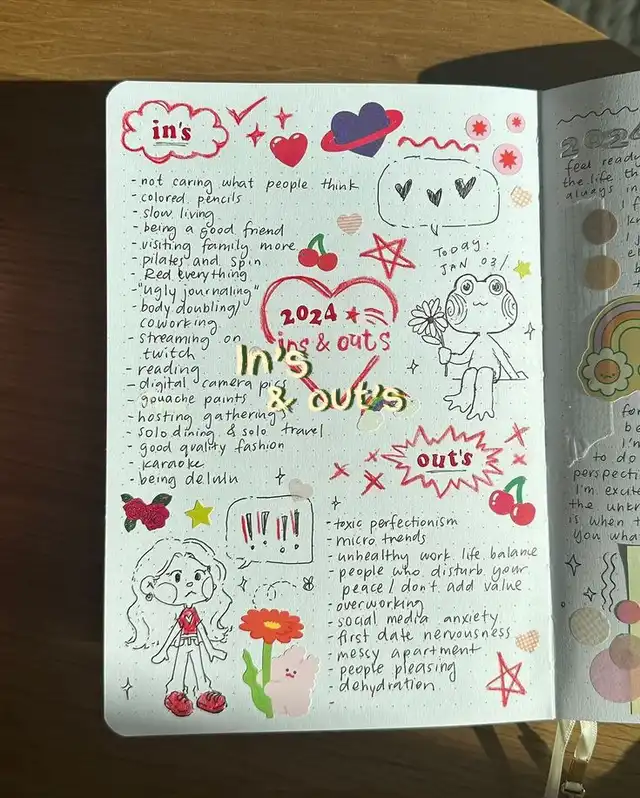 in's
- not caring what people think
- colored pencils
- slow living
- being a good friend
- visiting family more
- pilates and spin
- Red everything
- "ugly journaling"
- body doubling/
coworking
- streaming on
twitch
- reading
- digital camera pics
- gouache paints
- hosting gatherings
- solo dining & solo travel
- good quality fashion
- karaoke
- being delulu
TODAY:
JAN 03/
2024
ins & outs
In's
& out's
out's
- toxic perfectionism
- micro trends
- unhealthy work life balance
- people who disturb your
peace / don't add value.
- overworking
- social media anxiety
- first date nervousness
- messy apartment
- people pleasing
- dehydration
-
!!!!
202
feel ready
the life th
always in
I f
I
fo
be
I'm
to do
perspecti
I'm excite
the unkn
is when t
you wha